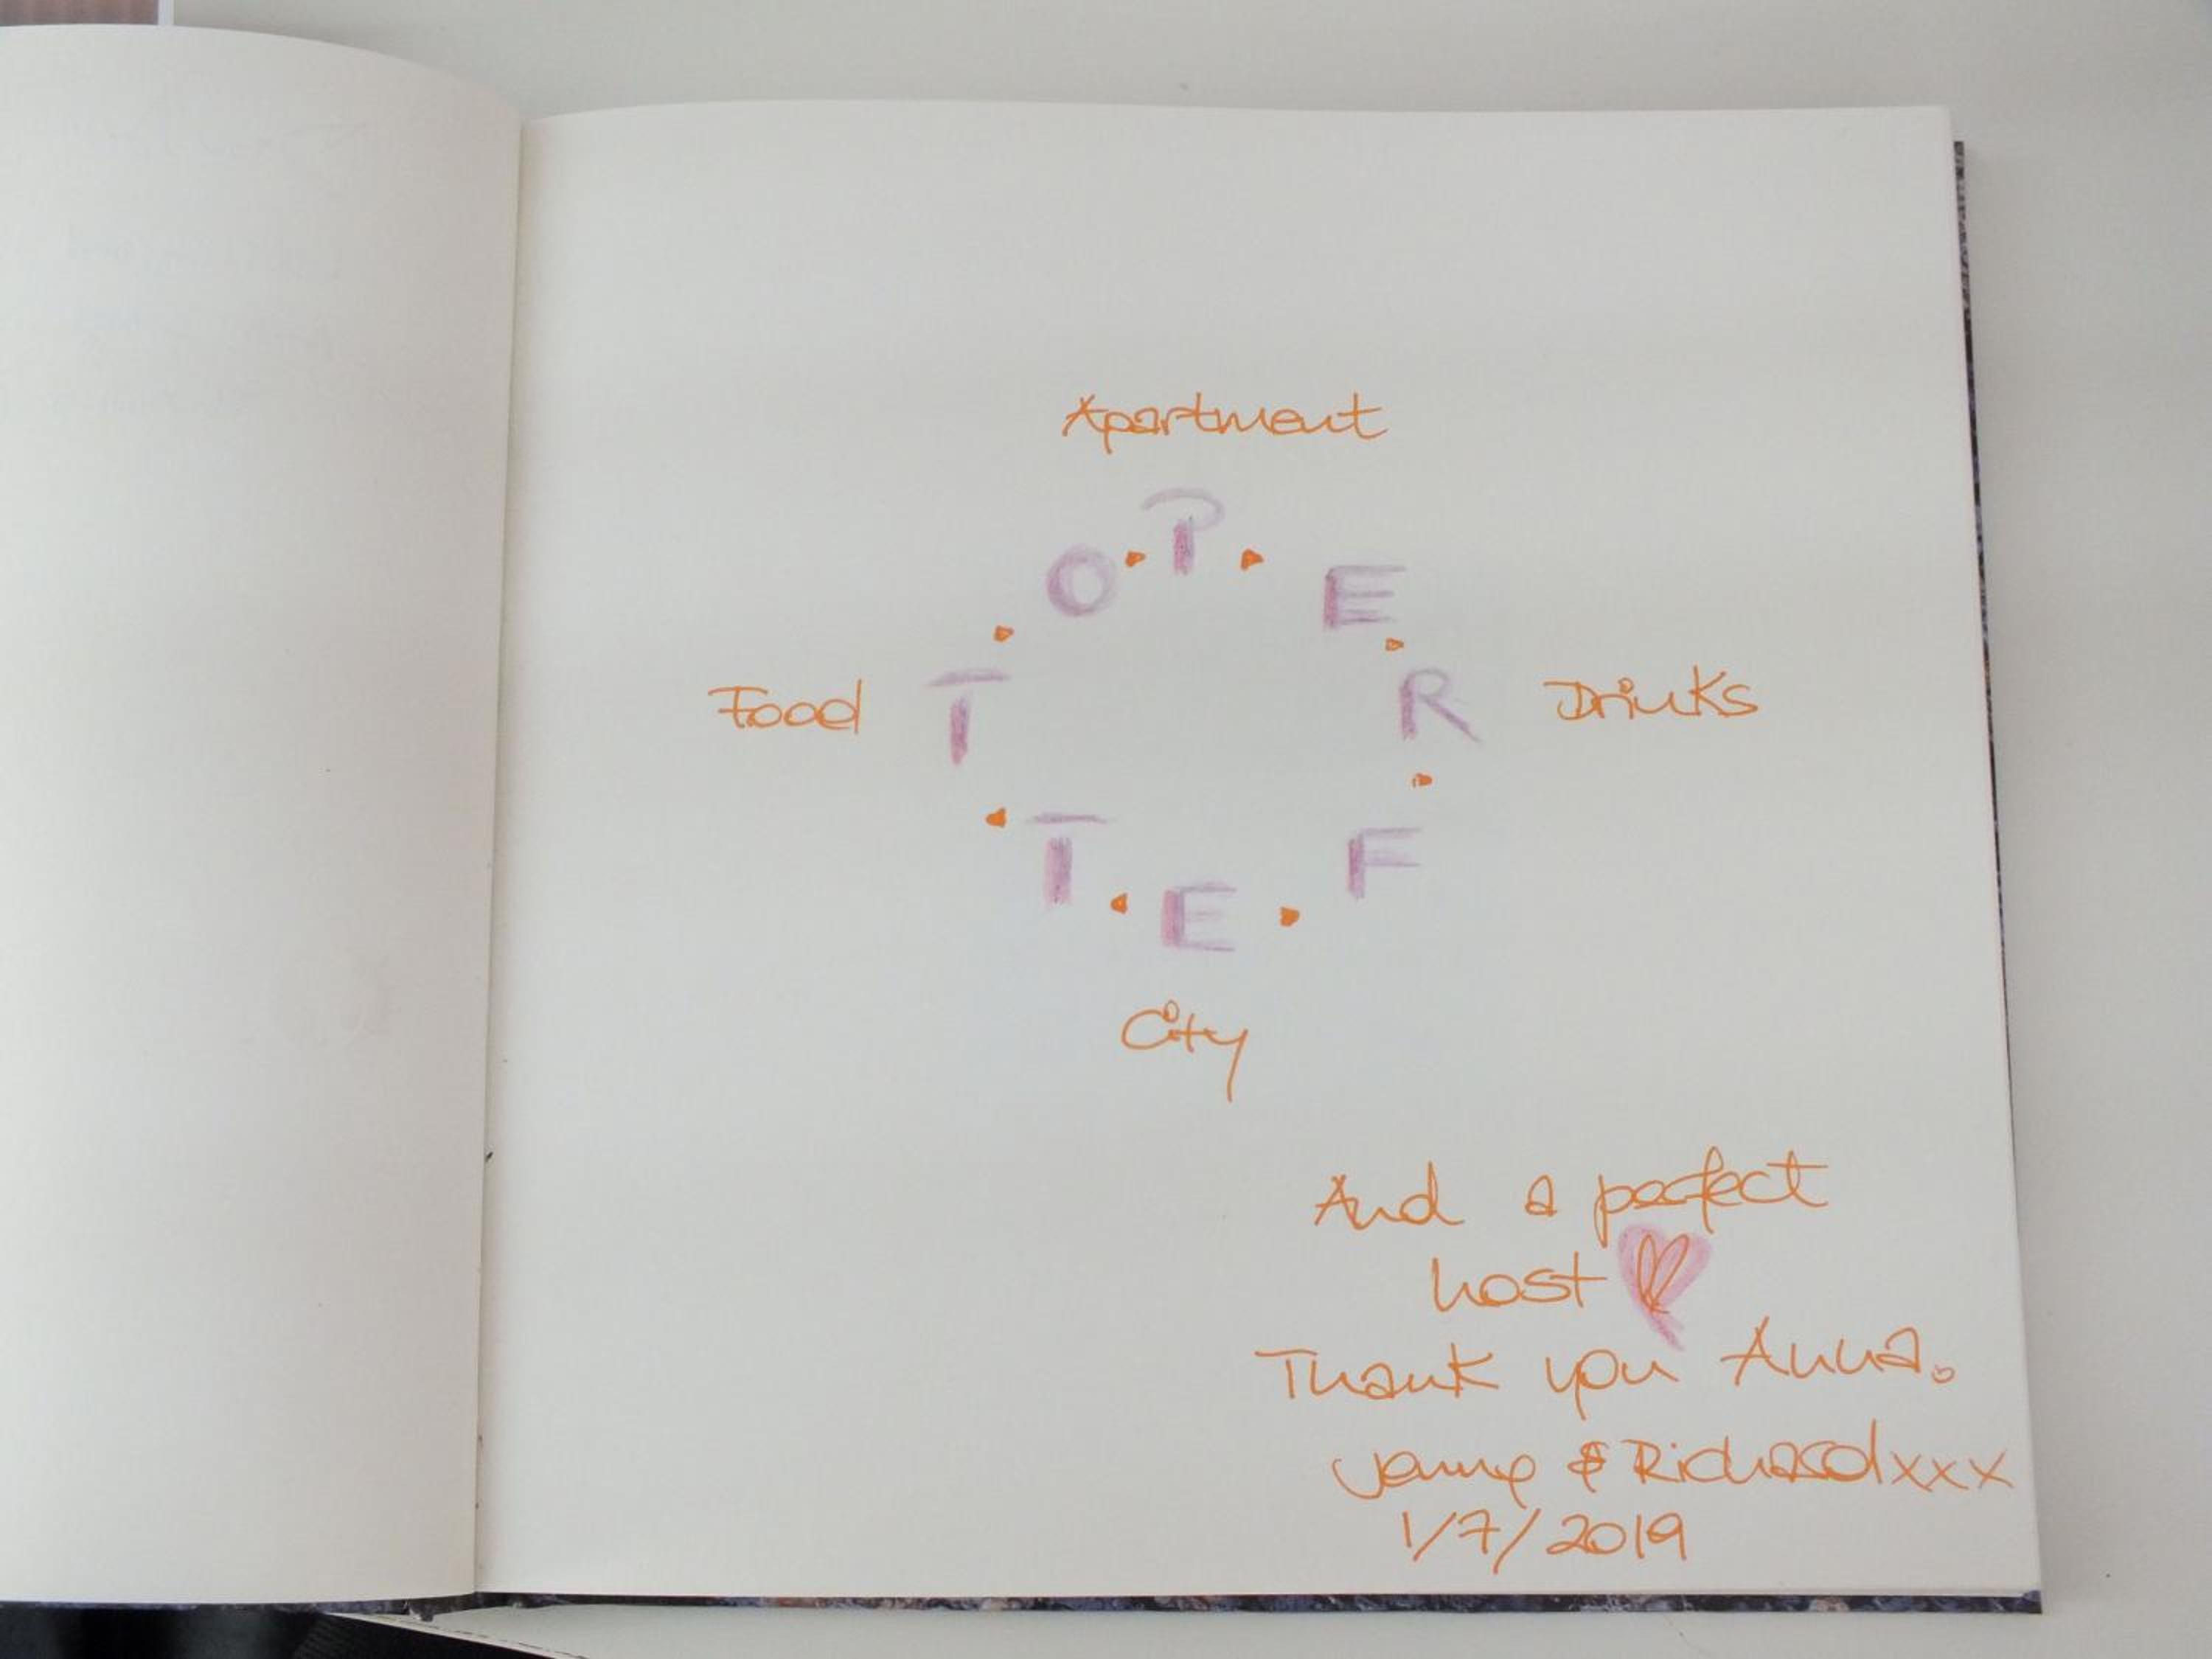 Apartment
PERFETTO
Food
Drinks
City
And a perfect
host
Thank you Anna.
Jenny & Richard xxx
1/7/2019